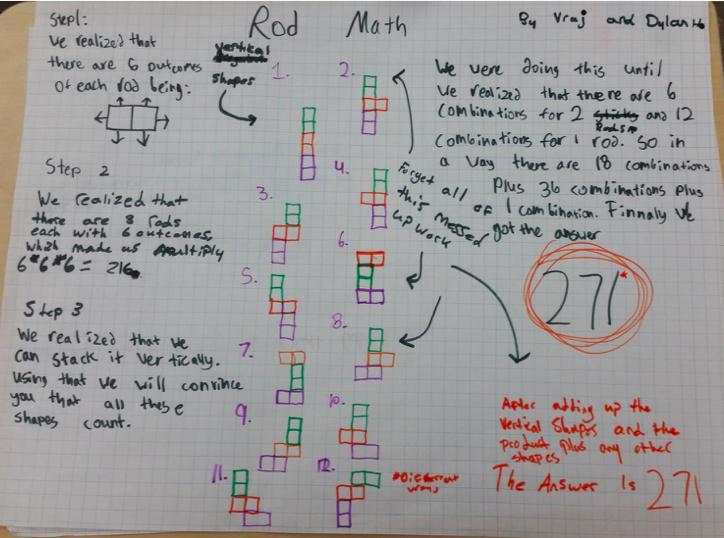 Rod Math
By Vraj and Dylan
Step1:
We realized that
there are 6 outcomes
Of each rod being:
Step 2
We realized that
there are 8 rods
each with 6 outcomes,
which made us multiply
6*6*6= 216.
Step 3
We realized that we
can stack it vertically.
Using that we will convince
you that all these
shapes count.
vertical
shapes
1.
2.
3.
4.
5.
6.
7.
8.
9.
10.
11.
12.
#Different
ways
Forget all
this messed
up work
We were doing this until
we realized that there are 6
combinations for 2 sticks and 12
Rods
combinations for 1 rod. So in
a way there are 18 combinations
Plus 36 combinations plus
of 1 combination. Finnaly we
got the answer
271*
After adding up the
vertical Shapes and the
product plus any other
shapes
The Answer Is 271